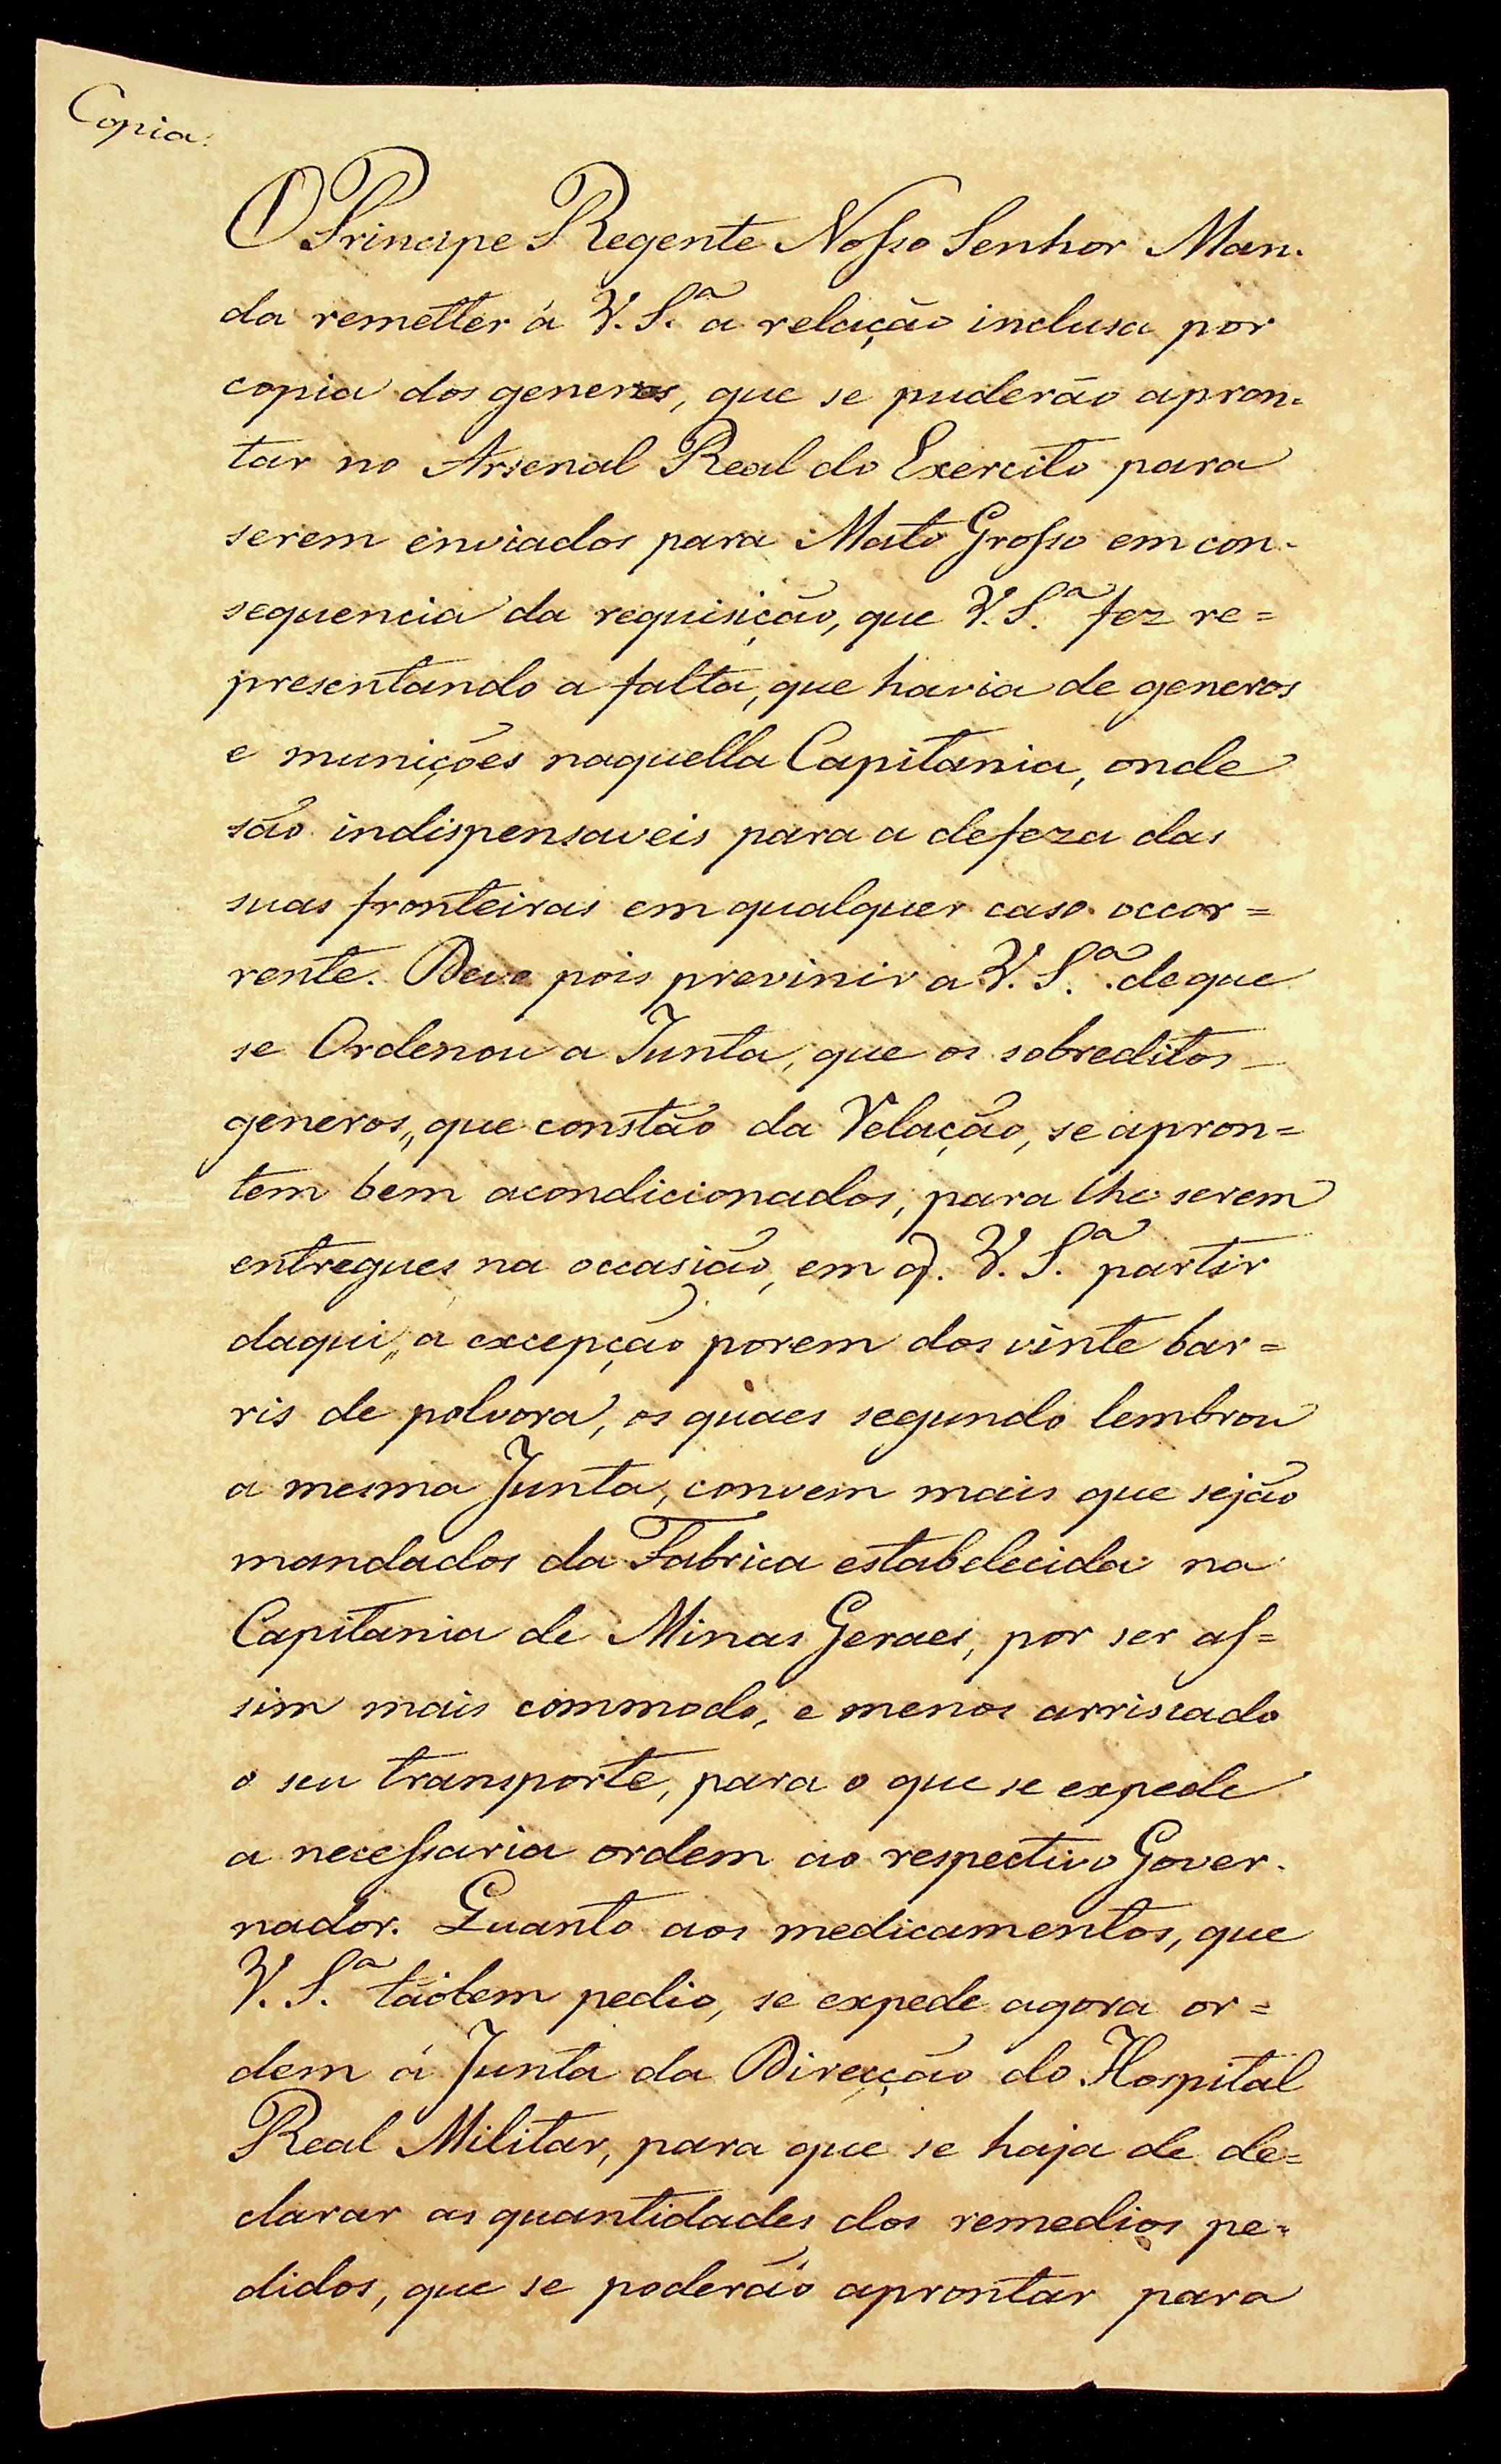 Copia.
O Principe Regente Nosso Senhor Man-
da remetter á V. S.ª a relação inclusa por
copia dos generos, que se puderão apron-
tar no Arsenal Real do Exercito para
serem enviados para Mato Grosso em con-
sequencia da requisição, que V. S.ª fez re=
presentando a falta, que havia de generos
e munições naquella Capitania, onde
são indispensaveis para a defeza das
suas fronteiras em qualquer caso occor=
rente. Devo pois previnir a V. S.ª de que
se Ordenou a Junta, que os sobreditos
generos, que constão da Relação, se apron=
tem bem acondicionados, para lhe serem
entregues na occasião, em q. V. S.ª partir
daqui, a excepção porem dos vinte bar=
ris de polvora, os quaes segundo lembrou
a mesma Junta, convem mais que sejão
mandados da Fabrica estabelecida na
Capitania de Minas Geraes, por ser as=
sim mais commodo, e menos arriscado
o seu transporte, para o que se expede
a necessaria ordem ao respectivo Gover-
nador. Quanto aos medicamentos, que
V. S.ª tãobem pedio, se expede agora or=
dem á Junta da Direcção do Hospital
Real Militar, para que se haja de de=
clarar as quantidades dos remedios pe=
didos, que se poderão aprontar para